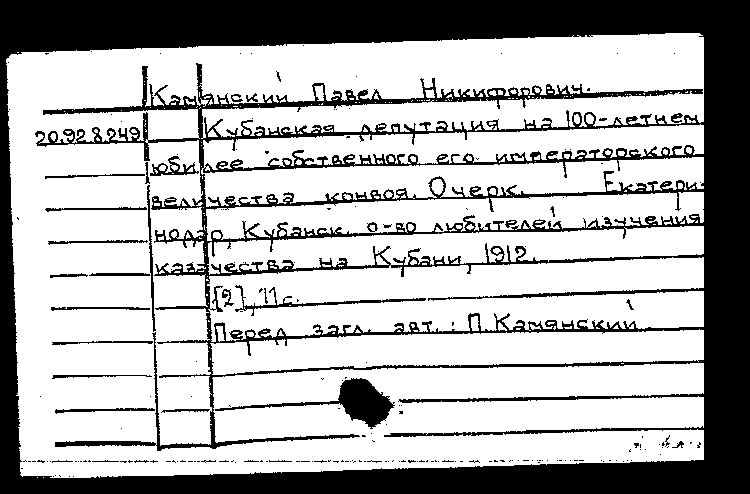 Камянский, Павел Никифорович.
20.92.8.249 Кубанская депутация на 100-летнем
юбилее собственного его императорского
величества конвоя. Очерк. Екатери-
нодар, Кубанск. о-во любителей изучения
казачества на Кубани, 1912.
[2], 11 с.
Перед загл. авт.: П. Камянский